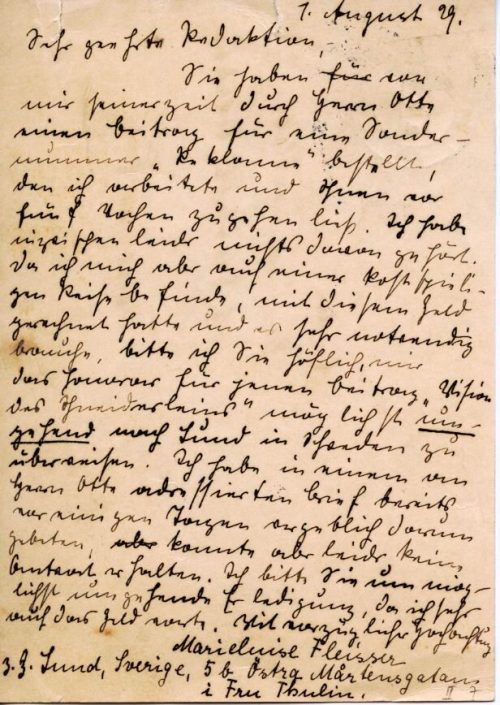 1. August 29.
Sehr geehrte Redaktion,
Sie haben für von
mir seinerzeit durch Herrn Otte
einen Beitrag für eine Sonder-
nummer „Reklame“ bestellt,
den ich arbeitete und Ihnen vor
fünf Wochen zugehen ließ. Ich habe
inzwischen leider nichts davon gehört.
Da ich mich aber auf einer kostspieli-
gen Reise befinde, mit diesem Geld
gerechnet hatte und es sehr notwendig
brauche, bitte ich Sie höflich, mir
das Honorar für jenen Beitrag „Vision
des Schneiderleins“ möglichst um-
gehend nach Lund in Schweden zu
überweisen. Ich habe in einem an
Herrn Otte adressierten Brief bereits
vor einigen Tagen vergeblich darum
gebeten, aber konnte aber leider keine
Antwort erhalten. Ich bitte Sie um mög-
lichst umgehende Erledigung, da ich sehr
auf das Geld warte. Mit vorzüglicher Hochachtung
Marieluise Fleisser
z. Z. Lund, Sverige, 5b Östra Mårtensgatan
i Fru Thulin.
II 7